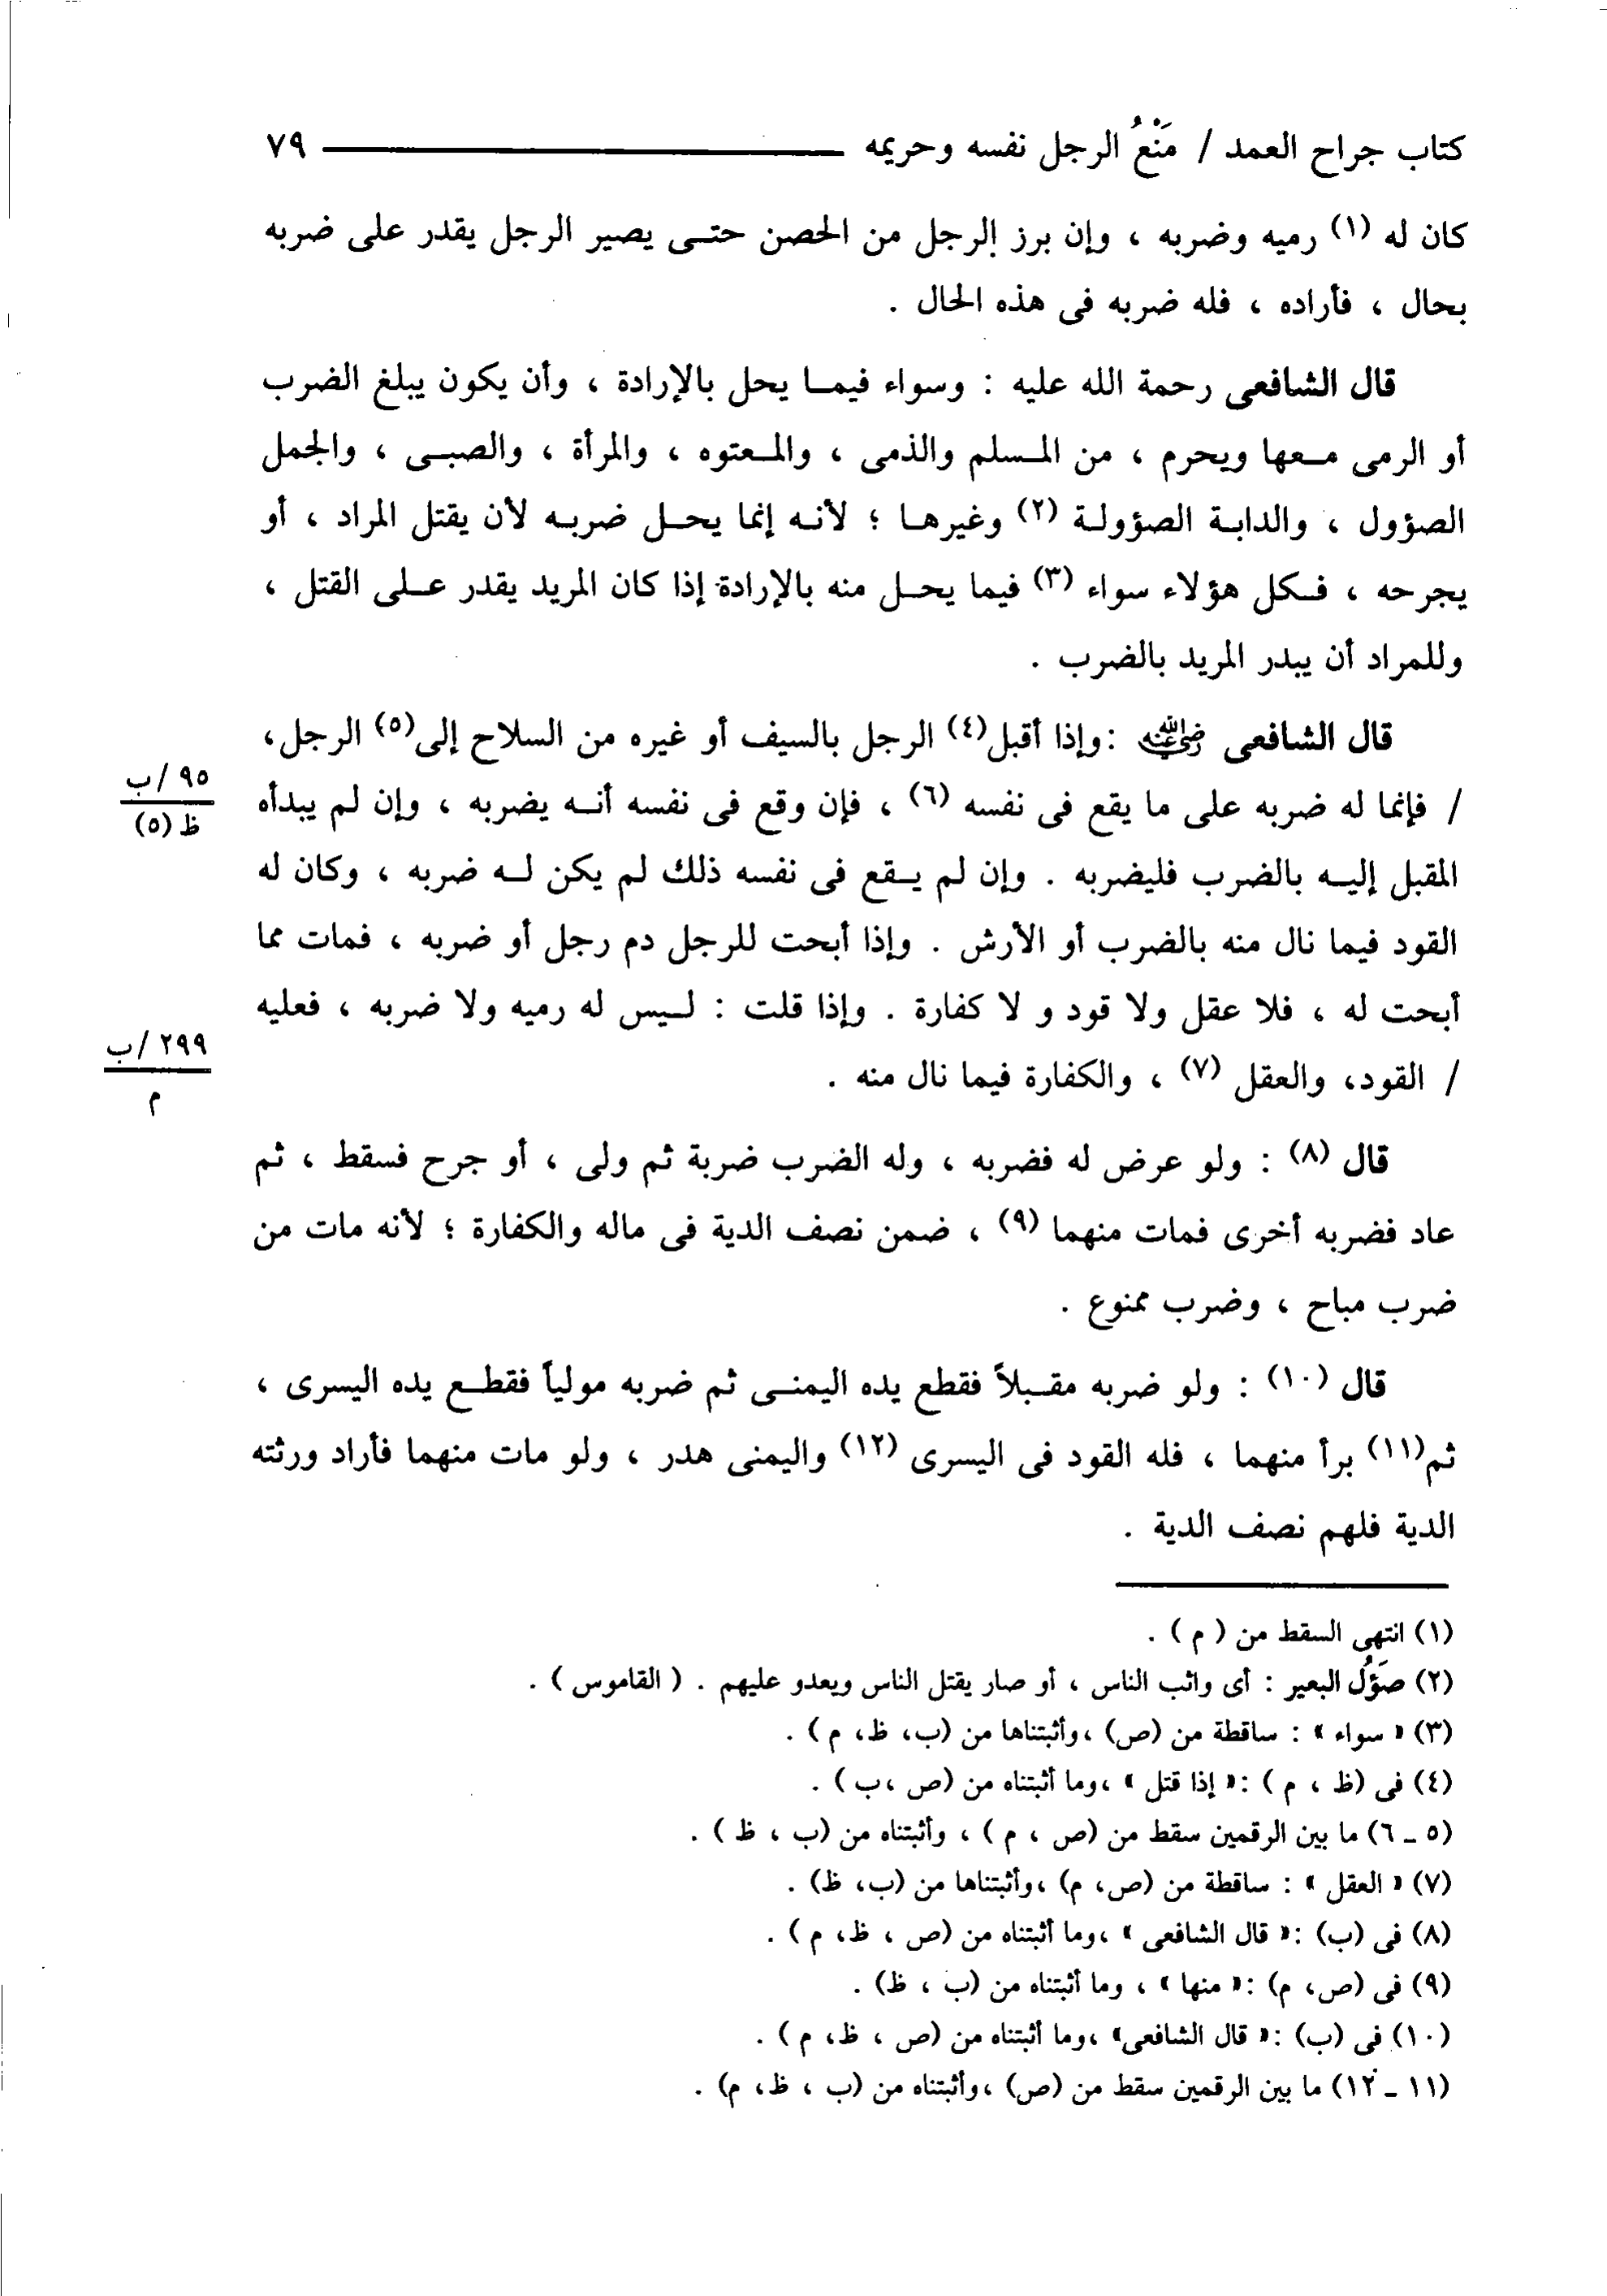 كتاب جراح العمد / مَنْعُ الرجل نفسه وحريمه ــــــــــ ٧٩
كان له (١) رميه وضربه ، وإن برز الرجل من الحصن حتى يصير الرجل يقدر على ضربه
بحال ، فأراده ، فله ضربه فى هذه الحال .
قال الشافعى رحمة الله عليه : وسواء فيما يحل بالإرادة ، وأن يكون يبلغ الضرب
أو الرمى معها ويحرم ، من المسلم والذمى ، والمعتوه ، والمرأة ، والصبى ، والجمل
الصؤول ، والدابة الصؤولة (٢) وغيرها ؛ لأنه إنما يحل ضربه لأن يقتل المراد ، أو
يجرحه ، فكل هؤلاء سواء (٣) فيما يحل منه بالإرادة إذا كان المريد يقدر على القتل ،
وللمراد أن يبدر المريد بالضرب .
قال الشافعى رضي الله عنه : وإذا أقبل(٤) الرجل بالسيف أو غيره من السلاح إلى(٥) الرجل،
/ فإنما له ضربه على ما يقع فى نفسه (٦) ، فإن وقع فى نفسه أنه يضربه ، وإن لم يبدأه
٩٥/ب
ظ(٥)
المقبل إليه بالضرب فليضربه . وإن لم يقع فى نفسه ذلك لم يكن له ضربه ، وكان له
القود فيما نال منه بالضرب أو الأرش . وإذا أبحت للرجل دم رجل أو ضربه ، فمات مما
أبحت له ، فلا عقل ولا قود و لا كفارة . وإذا قلت : ليس له رميه ولا ضربه ، فعليه
/ القود، والعقل (٧) ، والكفارة فيما نال منه .
٢٩٩/ب
م
قال (٨) : ولو عرض له فضربه ، وله الضرب ضربة ثم ولى ، أو جرح فسقط ، ثم
عاد فضربه أخرى فمات منهما (٩) ، ضمن نصف الدية فى ماله والكفارة ؛ لأنه مات من
ضرب مباح ، وضرب ممنوع .
قال (١٠) : ولو ضربه مقبلاً فقطع يده اليمنى ثم ضربه مولياً فقطع يده اليسرى ،
ثم(١١) برأ منهما ، فله القود فى اليسرى (١٢) واليمنى هدر ، ولو مات منهما فأراد ورثته
الدية فلهم نصف الدية .
(١) انتهى السقط من ( م ) .
(٢) صَؤُل البعير : أى واثب الناس ، أو صار يقتل الناس ويعدو عليهم . ( القاموس ) .
(٣) « سواء » : ساقطة من (ص) ،وأثبتناها من (ب، ظ، م ) .
(٤) فى (ظ ، م ) :« إذا قتل » ،وما أثبتناه من (ص ،ب ) .
(٥ ـ ٦) ما بين الرقمين سقط من (ص ، م ) ، وأثبتناه من (ب ، ظ ) .
(٧) « العقل » : ساقطة من (ص، م) ،وأثبتناها من (ب، ظ) .
(٨) فى (ب) :« قال الشافعى » ،وما أثبتناه من (ص ، ظ، م ) .
(٩) فى (ص، م) :« منها » ، وما أثبتناه من (ب ، ظ) .
(١٠) فى (ب) :« قال الشافعى» ،وما أثبتناه من (ص ، ظ، م ) .
(١١ ـ ١٢) ما بين الرقمين سقط من (ص) ،وأثبتناه من (ب ، ظ، م) .